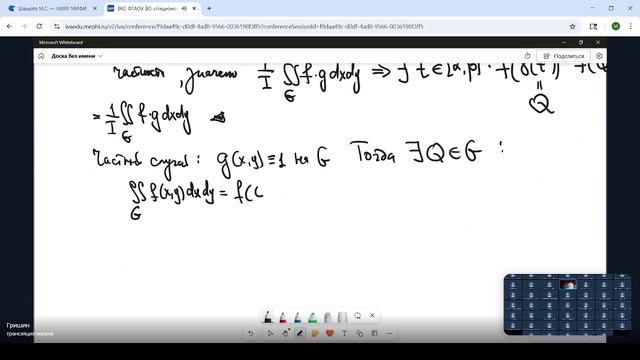 Шавырёв М.С. — НИЯУ МИФИ
ВКС ФГАОУ ВО «Национо
ivaedu.mephi.ru/v2/iva/conference/f9daa49c-d0df-4ad8-9566-0036198f3ff5?conferenceSessionId=f9daa49c-d0df-4ad8-9566-0036198f3ff5
Microsoft Whiteboard
Доска без имени
Поделиться
значит 1/I ∬_G f·g dxdy ⇒ ∃ t∈[α,β]: f(σ(t))
= Q
= 1/I ∬_G f·g dxdy
Частный случай: g(x,y) ≡ 1 на G Тогда ∃Q∈G :
∬_G f(x,y)dxdy = f(
Гришин
трансляция экрана